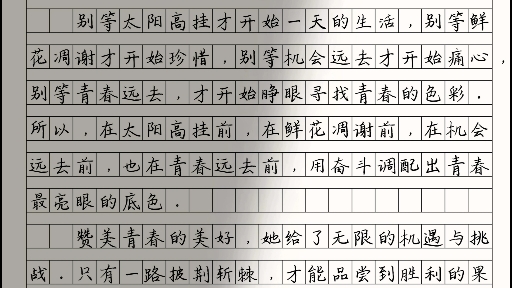 别等太阳高挂才开始一天的生活，别等鲜
花凋谢才开始珍惜，别等机会远去才开始痛心，
别等青春远去，才开始睁眼寻找青春的色彩．
所以，在太阳高挂前，在鲜花凋谢前，在机会
远去前，也在青春远去前，用奋斗调配出青春
最亮眼的底色．
赞美青春的美好，她给了无限的机遇与挑
战．只有一路披荆斩棘，才能品尝到胜利的果